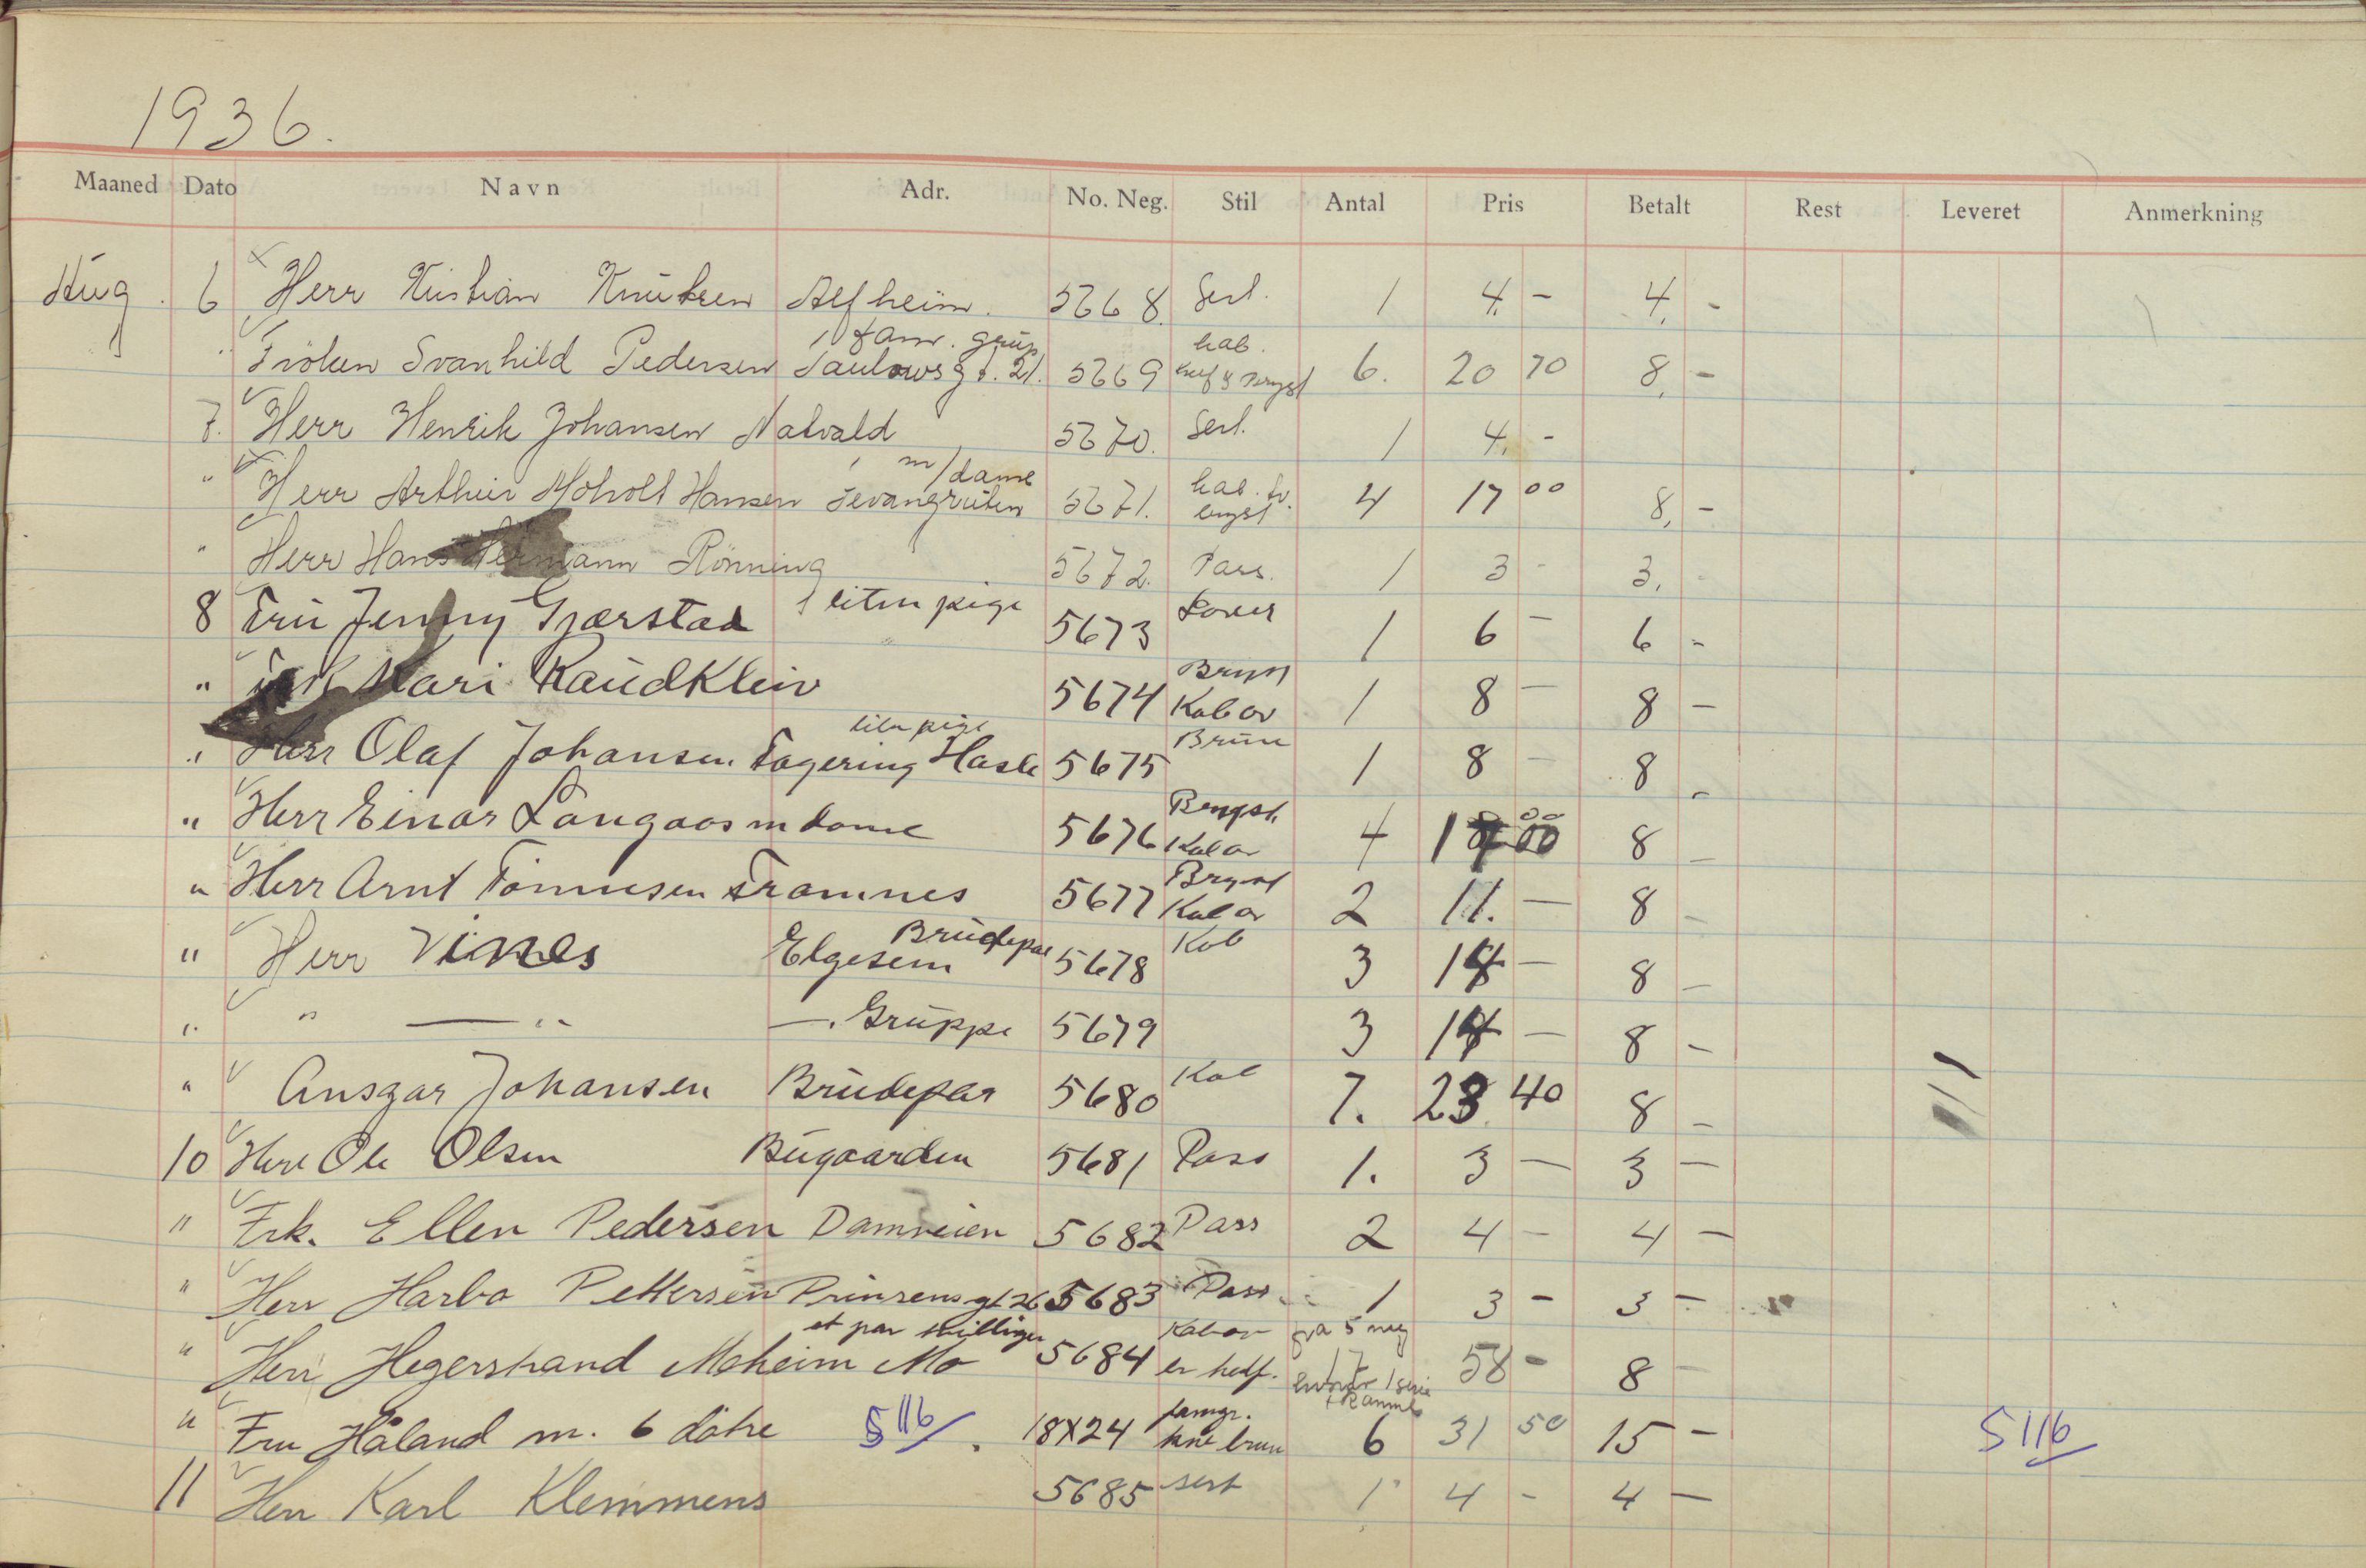 1936.
Maaned Dato Navn Adr. No. Neg. Stil Antal Pris Betalt Rest Leveret Anmerkning
Aug. 6 Herr Kristian Knutsen Alfheim. 5668. Serl. 1 4,- 4,-
fam. grup hab.
" Fröken Svanhild Pedersen Paulowsgt. 21. 5669 6. 20 70 8,-
7. Herr Henrik Johansen Nalvald 5670. Serl. 1 4,-
m/dame hab.
" Herr Arthur Moholt Hansen 5671. 4 17 00 8,-
" Herr Hans Hermann Rönning 5672. Pass. 1 3 - 3,-
liten pige
8 Fru Jenny Gjærstad 5673 1 6 - 6 -
Bryst
" Frk Kari Raudkleiv 5674 Kabov 1 8 - 8 -
liten pige Brun
" Herr Olaf Johansen Fagering Hasle 5675 1 8 - 8 -
Bryst
" Herr Einar Langaas m dame 5676 Kabov 4 00 8 -
Bryst
" Herr Arnt Tönnesen Framnes 5677 Kabov 2 11. - 8 -
Brudepar Kab
" Herr Vines Elgesem 5678 3 14 - 8 -
" " — " —. Gruppe 5679 3 14 - 8 -
" Ansgar Johansen Brudepar 5680 Kab 7. 23 40 8 -
10 Herr Ole Olsen Bugaarden 5681 Pass 1. 3 - 3 -
" Frk. Ellen Pedersen Damveien 5682 Pass 2 4 - 4 -
" Herr Harbo Pettersen Prinsensgt 26 5683 Pass 1 3 - 3 -
et par tvillinger Kabov fra 5 neg
" Herr Hegerstrand Moheim Mo 5684 en helf. 17 58 - 8 -
1 serie
+ Ramme
famgr.
" Fru Håland m. 6 döhre 5116/. 18X24 kné brun 6 31 50 15 - 5116
11 Herr Karl Klemmens 5685 serl 1 4 - 4 -